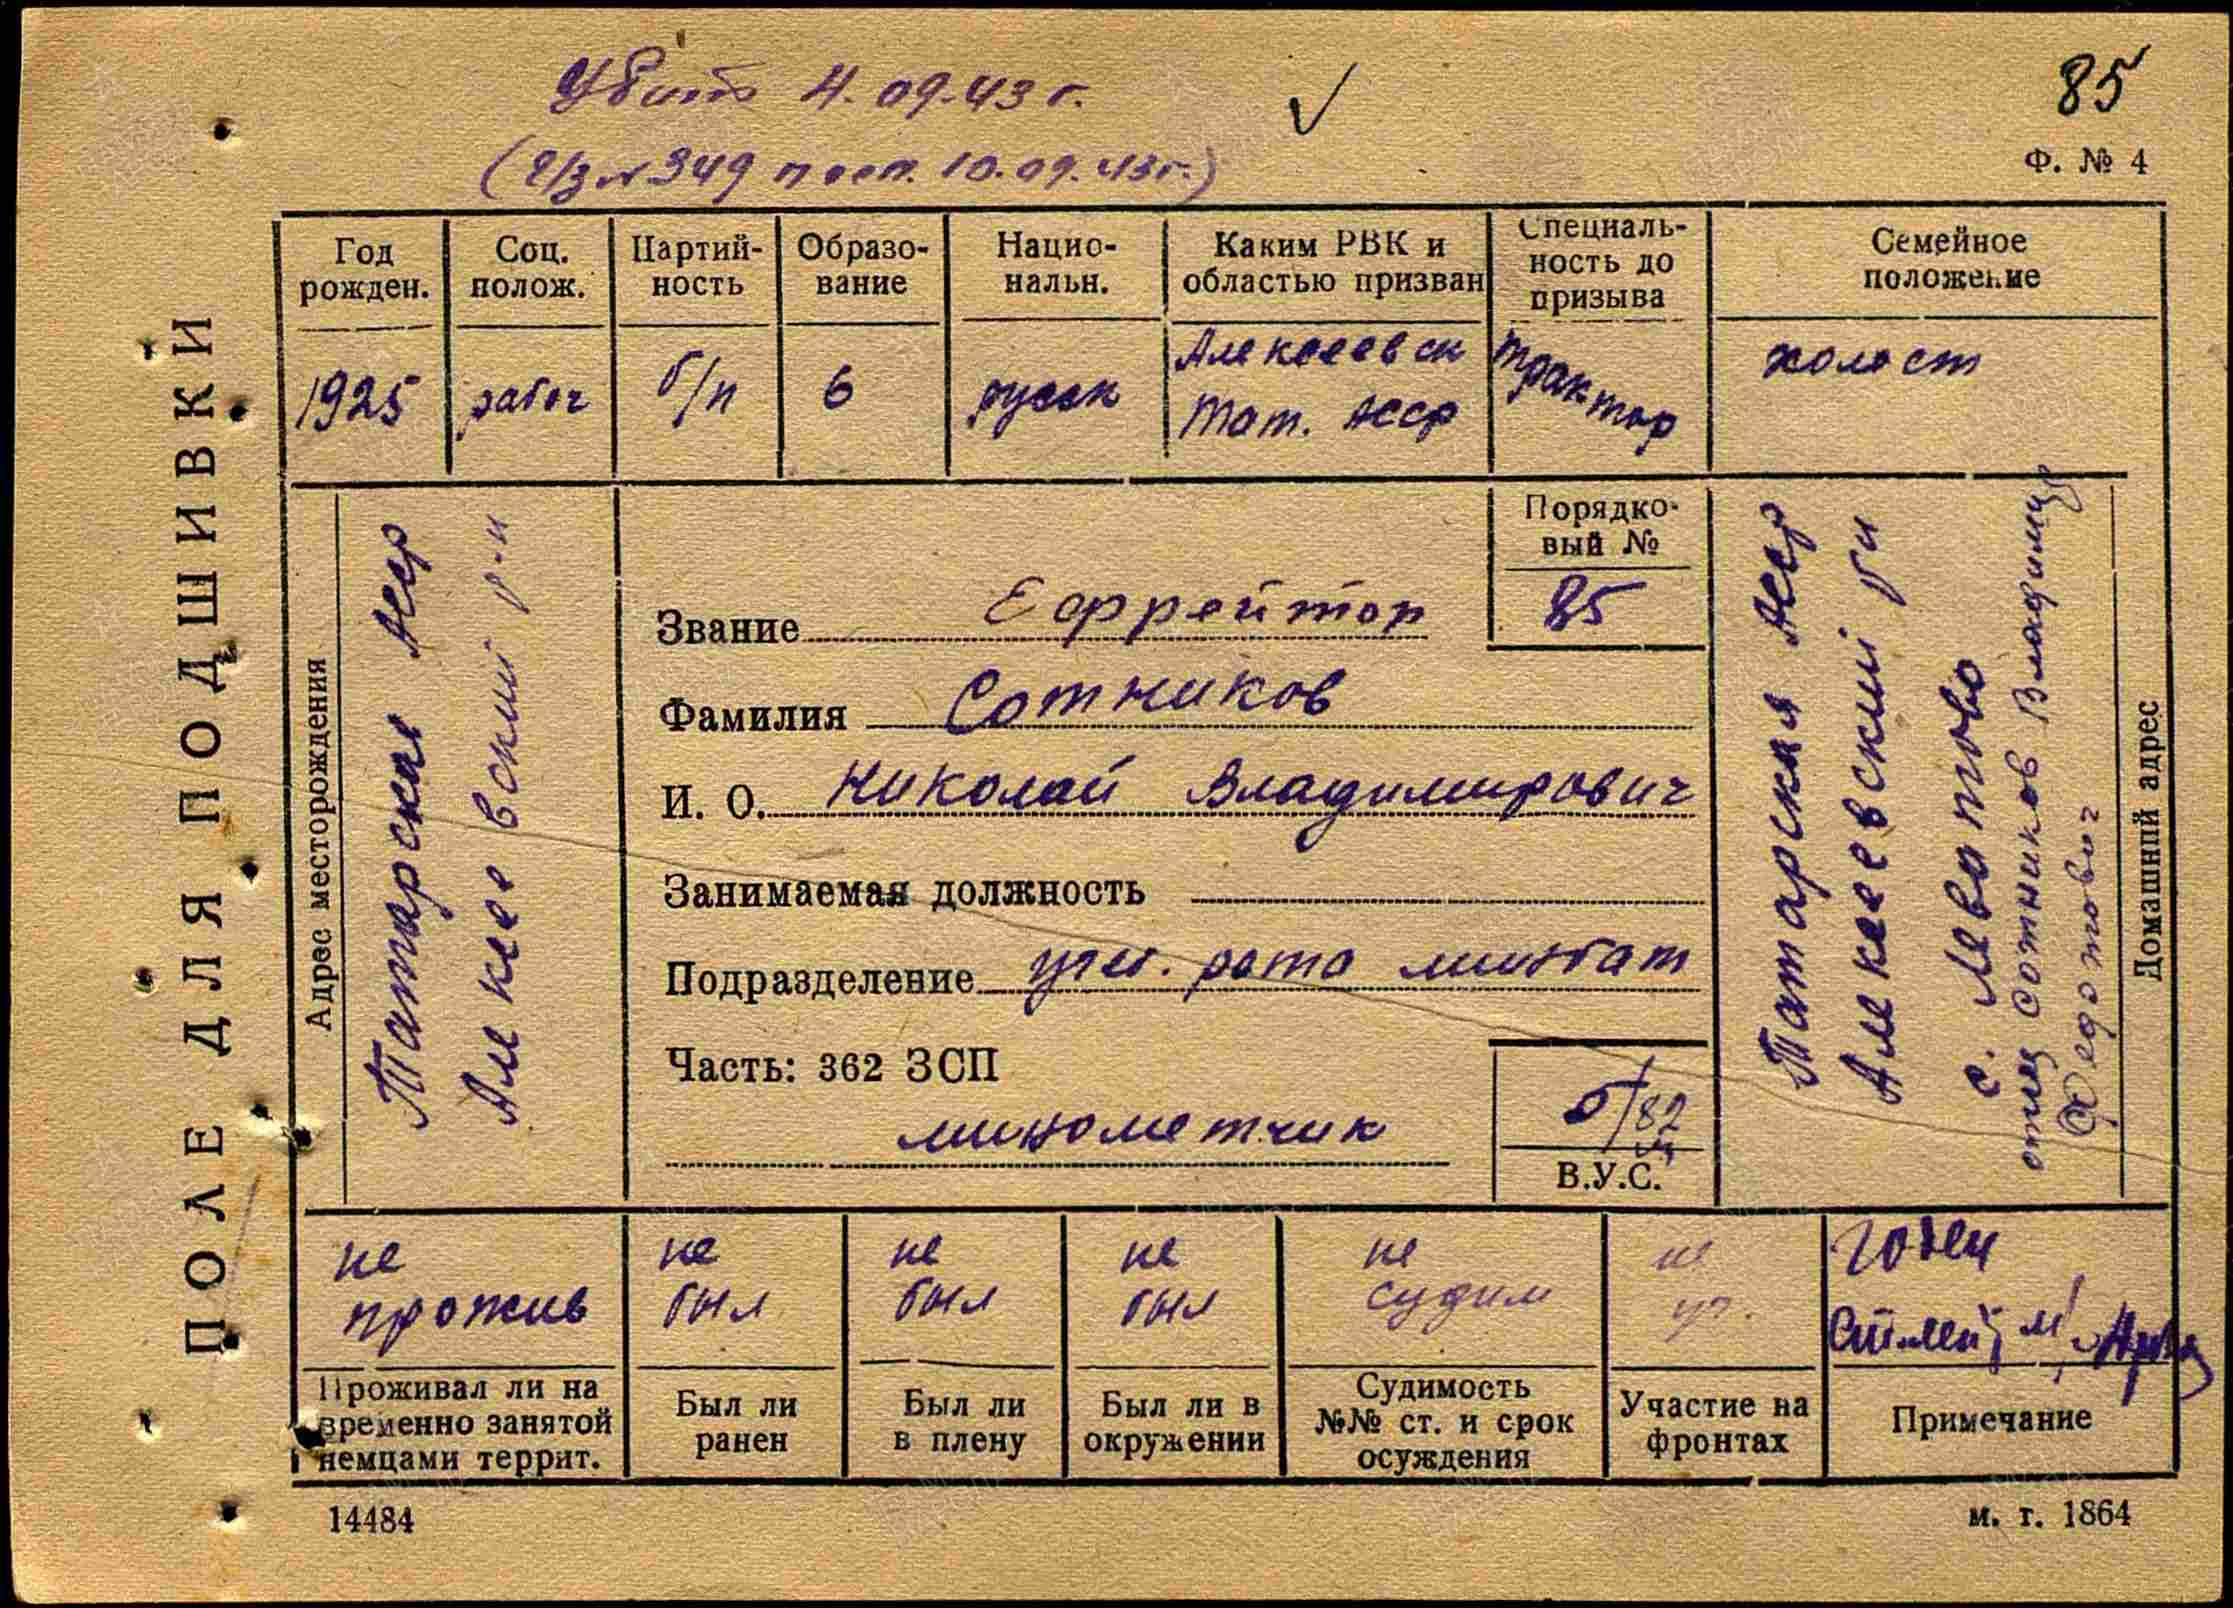 Убит 4.09.43 г.
85
(
№ 349
10.09.43 г.)
Ф. № 4
ПОЛЕ ДЛЯ ПОДШИВКИ
Год рожден.
Соц. полож.
Партий-ность
Образо-вание
Нацио-нальн.
Каким РВК и областью призван
Специаль-ность до призыва
Семейное положение
1925
рабоч
б/п
6
русск
Алексеевск
Тат. АССР
трактор
холост
Адрес месторождения
Татарская АССР
Алексеевский р-н
Порядко-
вый №
85
Звание Ефрейтор
Фамилия Сотников
И. О. Николай Владимирович
Занимаемая должность
Подразделение учеб. рота минбат
Часть: 362 ЗСП
минометчик
В.У.С.
Татарская АССР
Алексеевский р-н
с. Левашово
отец Сотников Владимир
Федотович
Домашний адрес
не прожив
не был
не был
не был
не судим
не уч.
годен
Проживал ли на временно занятой немцами террит.
Был ли ранен
Был ли в плену
Был ли в окружении
Судимость №№ ст. и срок осуждения
Участие на фронтах
Примечание
14484
м. т. 1864